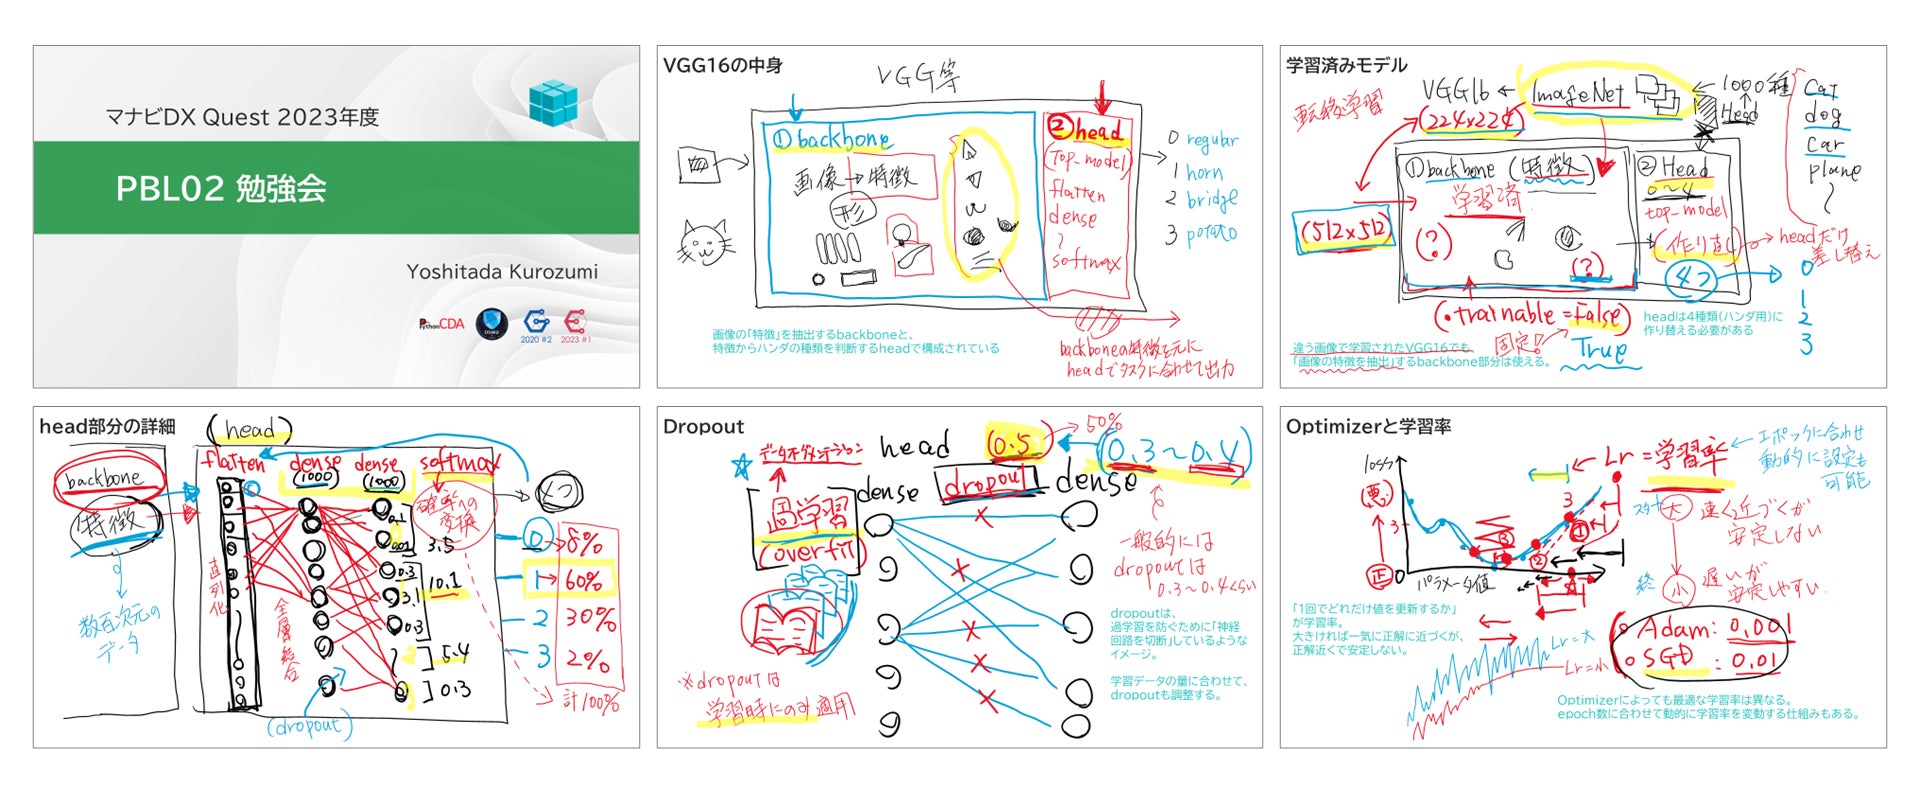 マナビDX Quest 2023年度
PBL02 勉強会
Yoshitada Kurozumi
PythonCDA
2020 #2
2023 #1
VGG16の中身
VGG等
①backbone
画像→特徴
形
②head
(Top_model)
flatten
dense
softmax
0 regular
1 horn
2 bridge
3 potato
画像の「特徴」を抽出するbackboneと、
特徴からハンダの種類を判断するheadで構成されている
backboneの特徴を元に
headでタスクに合わせて出力
学習済みモデル
転移学習
VGG16 ← ImageNet ← 1000種
(224x224)
Head
cat
dog
car
plane
①backbone (特徴)
学習済
(512x512)
(?)
(?)
② Head
0~4
top_model
(作り直し)
4つ
headだけ
差し替え
0
1
2
3
(・trainable = False)
固定!
True
headは4種類(ハンダ用)に
作り替える必要がある
違う画像で学習されたVGG16でも、
「画像の特徴を抽出」するbackbone部分は使える。
head部分の詳細
(head)
backbone
特徴
数百次元の
データ
flatten
dense
(1000)
dense
(1000)
softmax
確率への
変換
直列化
全層結合
(dropout)
3.5
0.3
3.1
0.3
10.1
5.4
0.3
4つ
0 → 8%
1 → 60%
2 30%
3 2%
計100%
Dropout
データオグメンテーション
head
(0.5)
50%
(0.3~0.4)
過学習
(overfit)
dense
dropout
dense
一般的には
dropoutは
0.3~0.4くらい
dropoutは、
過学習を防ぐために「神経
回路を切断」しているような
イメージ。
学習データの量に合わせて、
dropoutも調整する。
※dropoutは
学習時にのみ適用
Optimizerと学習率
loss
(悪)
3
正
0
パラメータ値
3
①
②
③
Lr = 学習率
エポックに合わせ
動的に設定も
可能
スタート 大 速く近づくが
安定しない
終 小 遅いが
安定しやすい.
「1回でどれだけ値を更新するか」
が学習率。
大きければ一気に正解に近づくが、
正解近くで安定しない。
Lr=大
Lr=小
Adam: 0.001
SGD : 0.01
Optimizerによっても最適な学習率は異なる。
epoch数に合わせて動的に学習率を変動する仕組みもある。